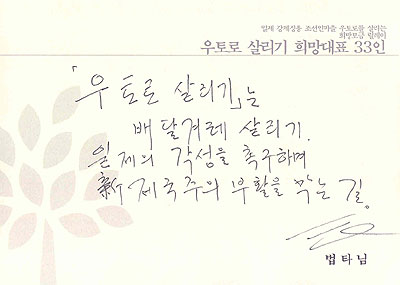 일제 강제징용 조선인마을 우토로를 살리는
희망모금 릴레이
우토로 살리기 희망대표 33인
「우토로 살리기」는
배달겨레 살리기.
일제의 각성을 촉구하며
新 제국주의 부활을 막는 길.
법타님